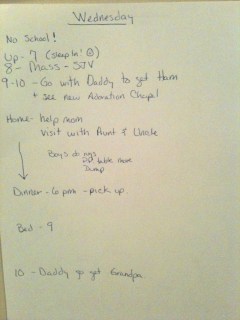 Wednesday
No School!
Up - 7 (sleep In! ☺)
8 - Mass - SJV
9-10 - Go with Daddy to get Ham
+ see new Adoration Chapel
Home - help mom
Visit with Aunt & Uncle
Boys do
old table move
Dump
Dinner - 6pm - pick up.
Bed - 9
10 - Daddy go get Grandpa